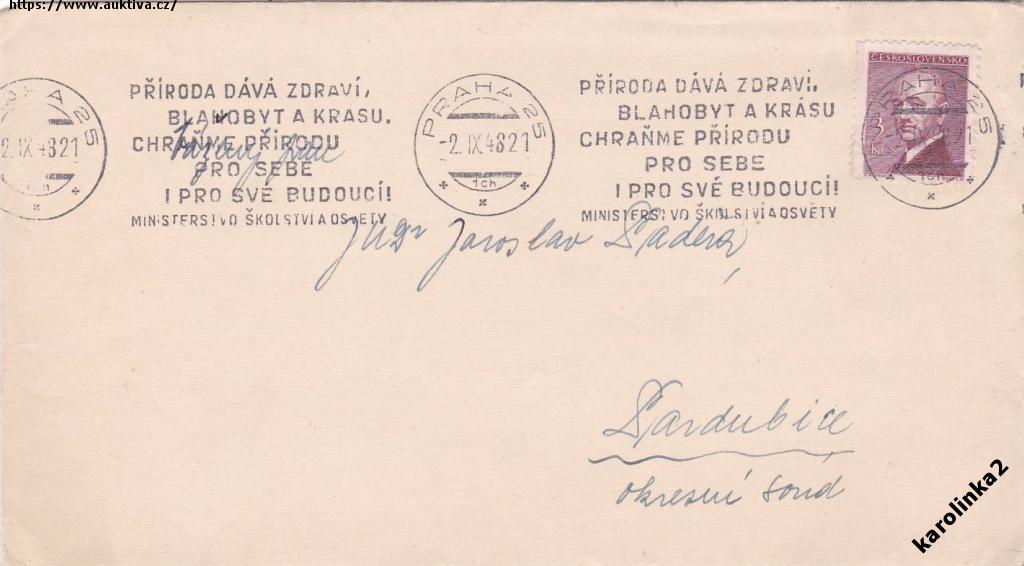 https://www.auktiva.cz/
PŘÍRODA DÁVÁ ZDRAVÍ,
BLAHOBYT A KRÁSU.
CHRAŇME PŘÍRODU
PRO SEBE
I PRO SVÉ BUDOUCÍ!
MINISTERSTVO ŠKOLSTVÍ A OSVĚTY
PRAHA 25
-2.IX.4821
1ch
PRAHA 25
-2.IX.4821
1ch
PŘÍRODA DÁVÁ ZDRAVÍ,
BLAHOBYT A KRÁSU
CHRAŇME PŘÍRODU
PRO SEBE
I PRO SVÉ BUDOUCÍ!
MINISTERSTVO ŠKOLSTVÍ A OSVĚTY
ČESKOSLOVENSKO
3
Kčs
PRAHA 25
1ch
Vážený pane
JUDr Jaroslav
Pardubice
okresní soud
karolinka2